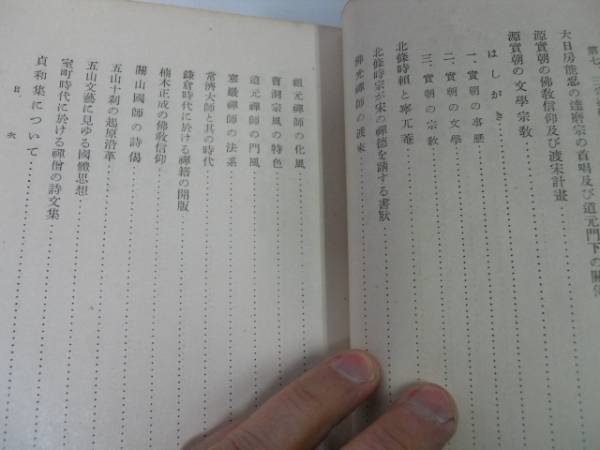 大日房能忍の達磨宗の首唱及び道元門下の關係
源實朝の佛教信仰及び渡宋計畫
源實朝の文學宗教
はしがき
一、實朝の事歷
二、實朝の文學
三、實朝の宗教
北條時頼と寧兀菴
北條時宗が宋の禪德を請する書狀
佛光禪師の渡來
祖元禪師の化風
曹洞宗風の特色
道元禪師の門風
寒巖禪師の法系
常濟大師と其の時代
鎌倉時代に於ける禪籍の開版
楠木正成の佛教信仰
關山國師の詩偈
五山十刹の起原沿革
五山文藝に見ゆる國體思想
室町時代に於ける禪僧の詩文集
貞和集について
目次